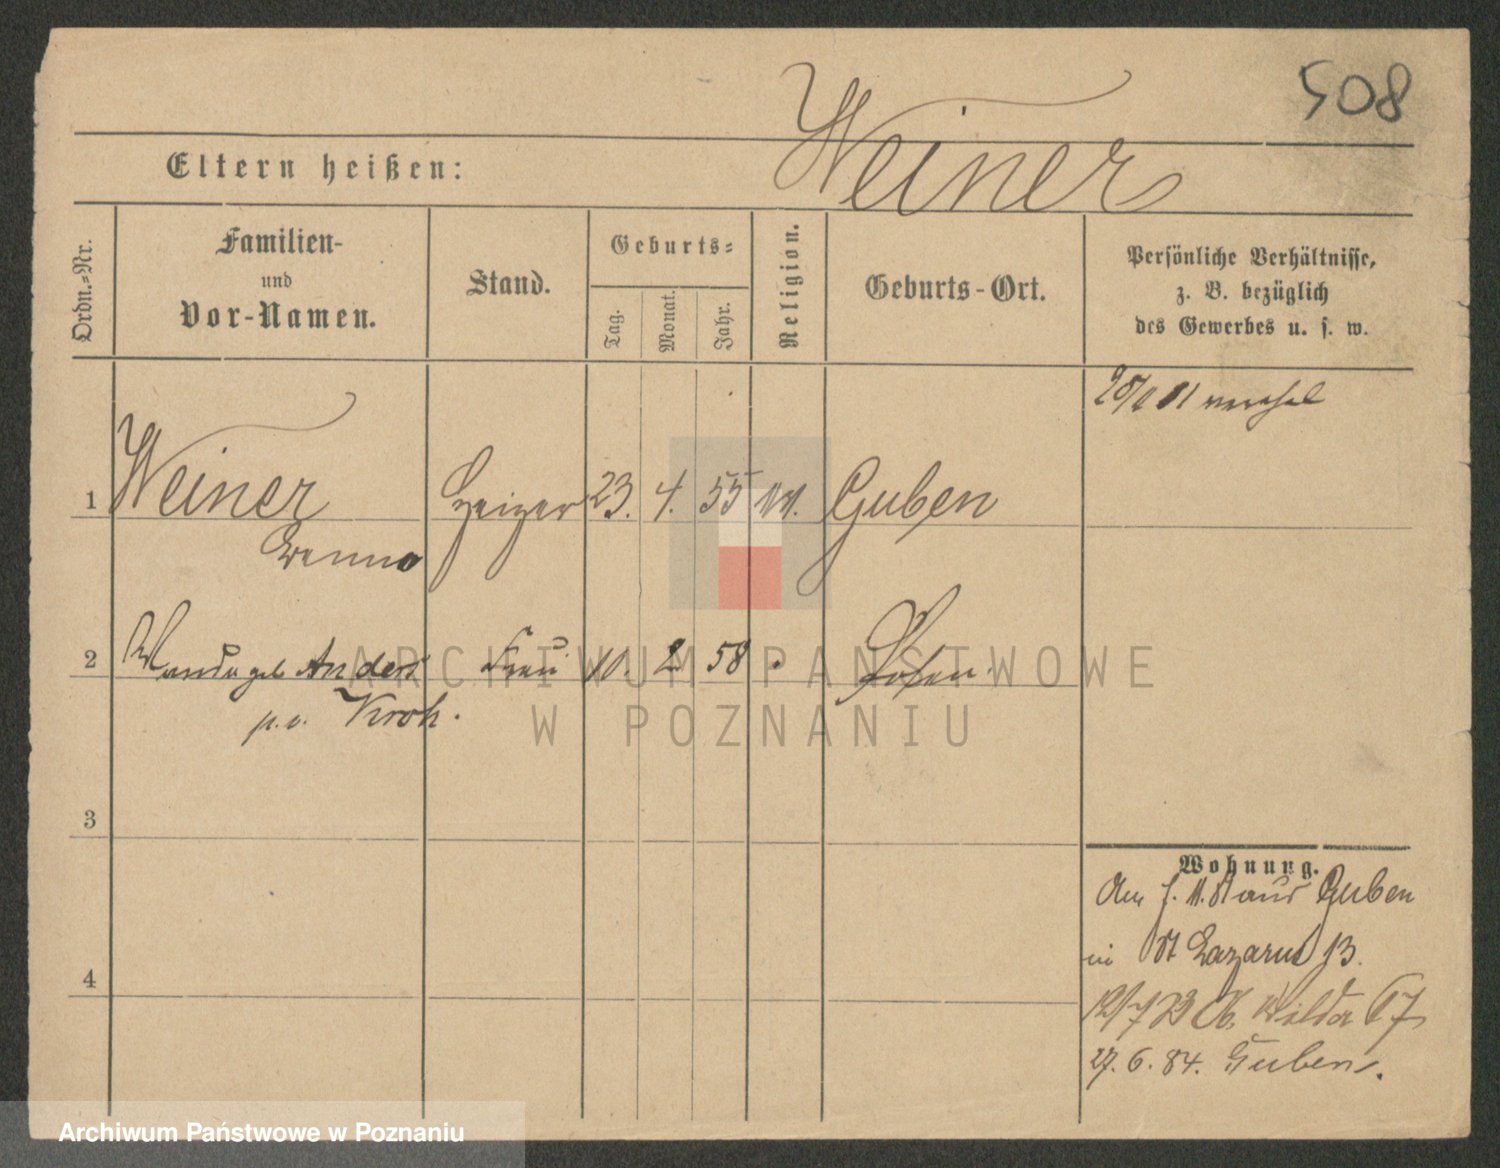 508
Weiner
Eltern heißen:
Ordn.-Nr.
Familien-
und
Vor-Namen.
Stand.
Geburts-
Tag.
Monat.
Jahr.
Religion.
Geburts-Ort.
Persönliche Verhältnisse,
z. B. bezüglich
des Gewerbes u. s. w.
81
1 Weiner Heizer 23. 4. 55 Guben
Benno
2 Wanda geb Anders Frau 10. 2 58 Posen
p.v. Kroh.
3
4
Wohnung.
Am aus Guben
in St Lazarus 13.
Wilda
27. 6. 84. Guben.
ARCHIWUM PAŃSTWOWE
W POZNANIU
Archiwum Państwowe w Poznaniu